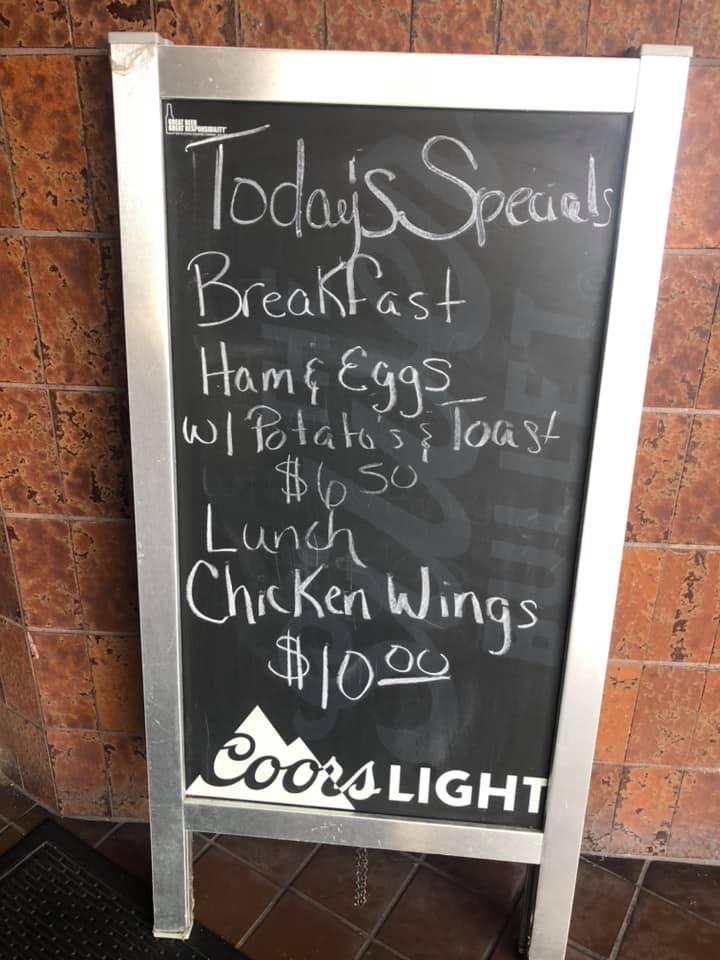 GREAT BEER
GREAT RESPONSIBILITY
Today's Specials
Breakfast
Ham & Eggs
w/ Potato's & Toast
$6 50
Lunch
Chicken Wings
$10 00
Coors LIGHT
BULLET